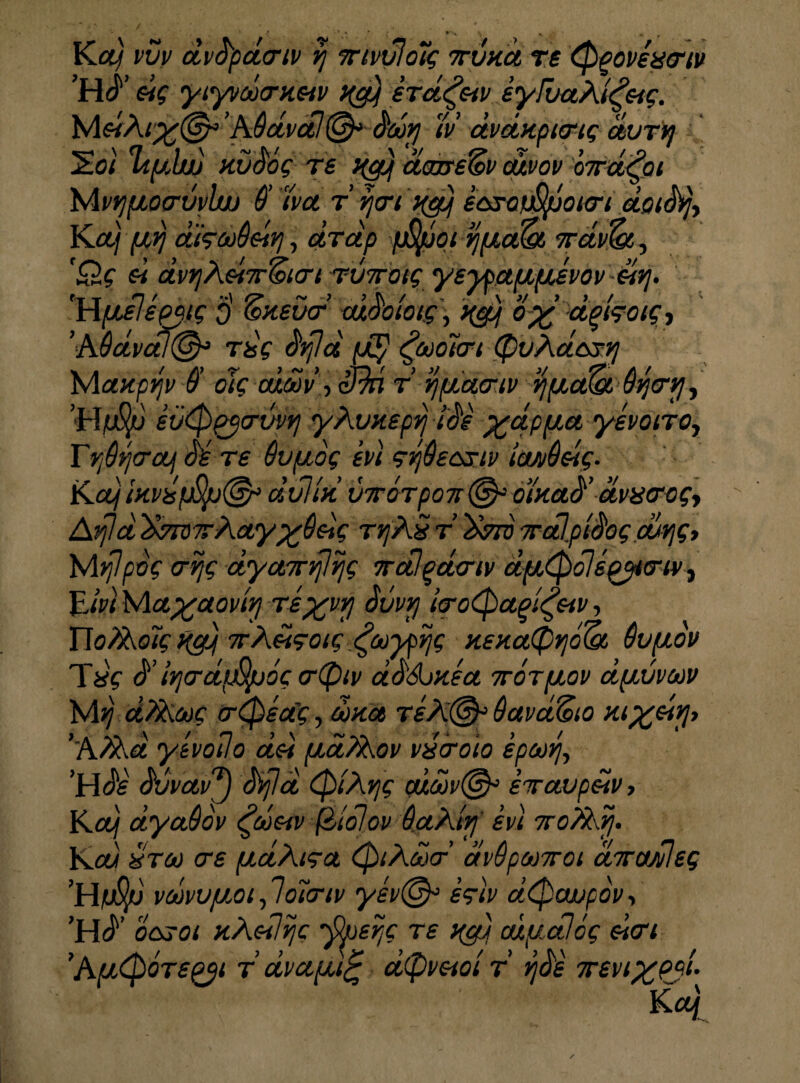 Καὶ νῦν ἀνδράσιν ἢ πινυτοῖς πύκα τε φρονέουσιν
Ἠδ' εἰς γιγνώσκειν καὶ ἐτάζειν ἐγγυαλίζεις.
Μείλιχος Ἀθάνατος δώῃ ἵν' ἀνάκρισις αὐτὴ
Σοὶ τιμὴν κῦδός τε καὶ ἄσπετον αἶνον ὀπάζοι
Μνημοσύνην θ' ἵνα τ' ᾖσι καὶ ἐσσομένοισι ἀοιδὴ,
Καὶ μὴ ἀϊστωθείη, ἀτὰρ μένοι ἤματα πάντα,
Ὣς εἰ ἀνηλείπτοισι τύποις γεγραμμένον εἴη.
Ἡμετέραις δὲ τοκεῦσ' αἰδοίοις, καὶ ὄχ' ἀρίστοις,
Ἀθάνατος τοὺς δητὰ μετὰ ζωοῖσι φυλάσσῃ
Μακρὴν θ' οἷς αἰῶν', ἐπὶ τ' ἤμασιν ἤματα θήσῃ,
Ἡμὲν εὐφροσύνη γλυκερὴ ἰδὲ χάρμα γένοιτο,
Γηθήσαι δέ τε θυμὸς ἐνὶ στήθεσσιν ἰανθείς.
Καὶ ἱκνούμενος αὐτίκ' ὑπότροπος οἴκαδ' ἄνουσος,
Δητὰ ἀποπλαγχθεὶς τηλοῦ τ' ἀπὸ πατρίδος αἴης,
Μητρὸς σῆς ἀγαπητῆς πατράσιν ἀμφοτέραισιν,
Εἰνὶ Μαχαονίῃ τέχνῃ δύνῃ ἰσοφαρίζειν,
Πολλοῖς καὶ πλείστοις ζωγρῇς κεκαφηότα θυμὸν
Τοὺς δ' ἰησάμενός σφιν ἀδευκέα πότμον ἀμύνων
Μὴ ἄλλως σφέας, ὦκα τέλος θανάτοιο κιχείη,
Ἀλλὰ γένοιτο ἀεὶ μᾶλλον νούσοιο ἐρωὴ,
Ἠδὲ δύναντ) δητὰ φίλης αἰῶνος ἐπαυρεῖν,
Καὶ ἀγαθὸν ζώειν βίοτον θαλίῃ ἐνὶ πολλῇ.
Καὶ οὕτω σε μάλιστα φιλῶσ' ἄνθρωποι ἅπαντες
Ἡμὲν νώνυμοι, τοῖσιν γένος ἐστὶν ἀφαυρὸν,
Ἠδ' ὅσσοι κλειτῆς γενεῆς τε καὶ αἵματός εἰσι
Ἀμφότεραι τ' ἀναμὶξ ἀφνειοί τ' ἠδὲ πενιχραί.
Καὶ